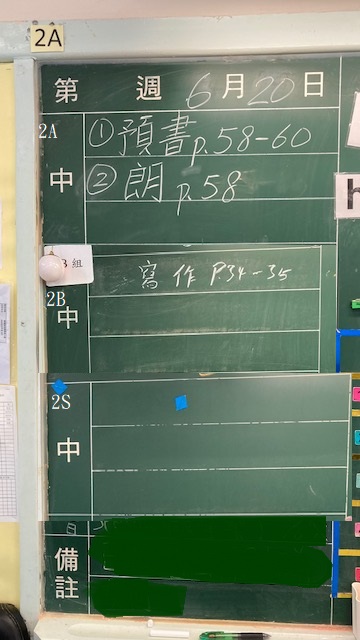 2A
第 週 6月20日
2A
中
①預書p.58-60
②朗 p.58
B組
2B
中
寫作 P.34-35
2S
中
備註